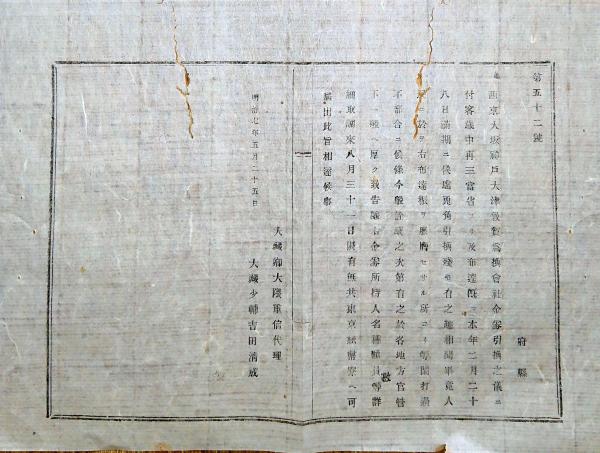 第五十二號
府縣
西京大坂神戸大津敦賀爲換會社金券引換之儀ニ
付客歳中再三當省ヨリ及布達既ニ本年二月二十
八日満期ニ候處兎角引換殘モ有之趣相聞畢竟人
民ニ於テ右布達振ヲ熟知セサル所ニ
不都合ニ候條今般詮議之次第有之於各地方官管
下一般ヘ厚ク致告諭右金券所持人名種類員數等詳
細取調來八月三十一日限有無共東京紙幣寮ヘ可
届出此旨相達候事
明治七年五月二十五日
大藏卿大隈重信代理
大藏少輔吉田清成